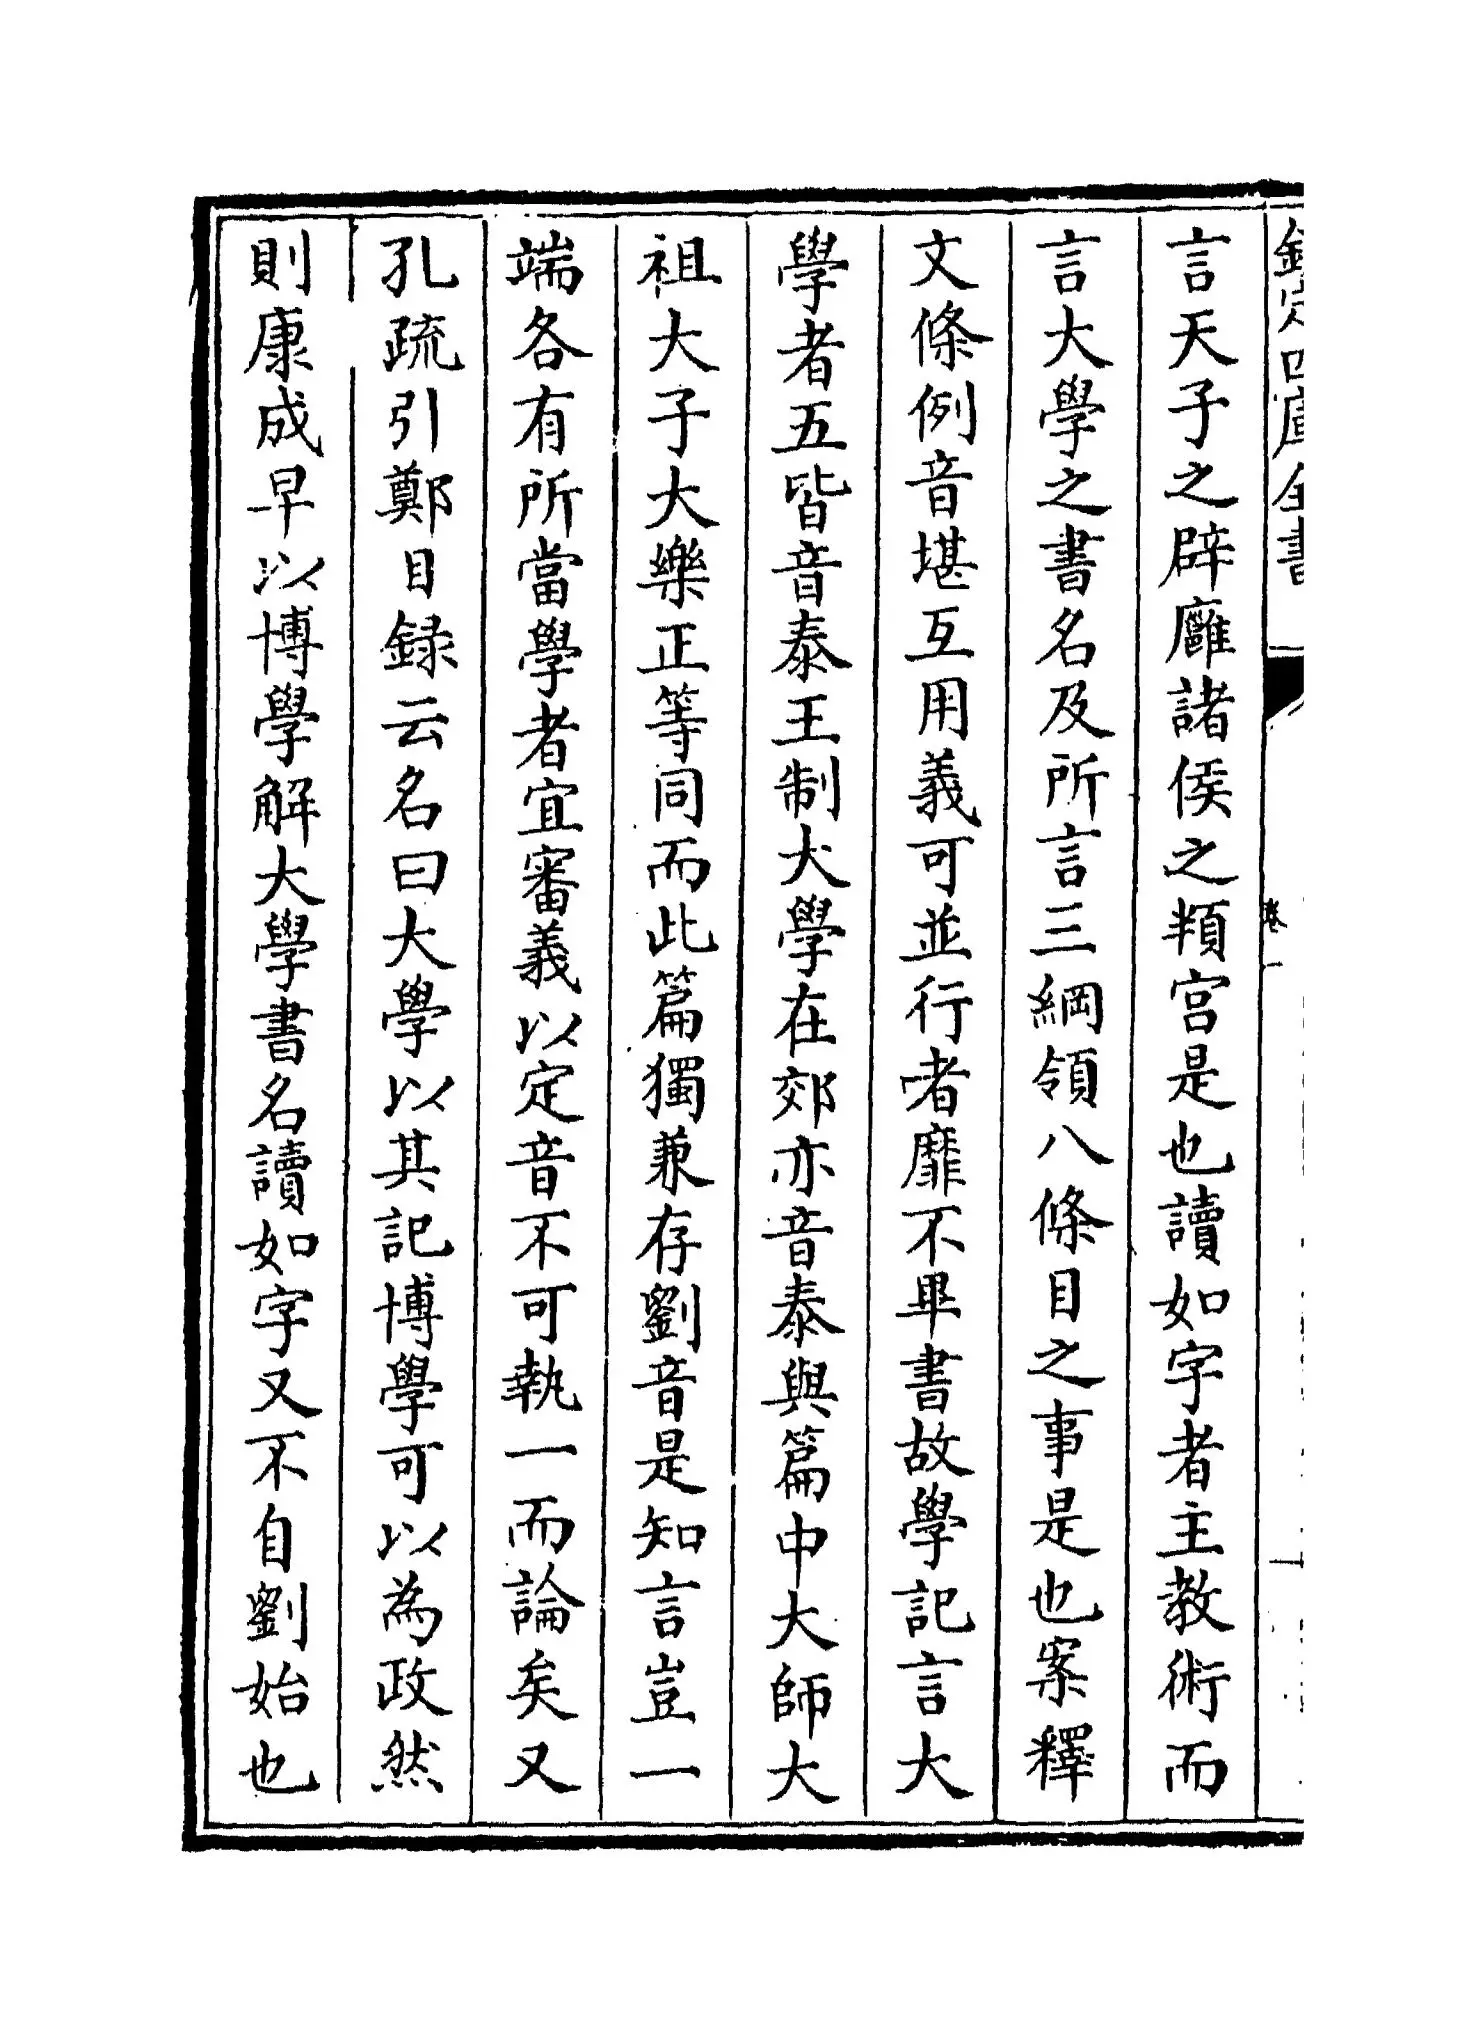 欽定四庫全書
卷一
言天子之辟廱諸侯之頖宫是也讀如字者主教術而
言大學之書名及所言三綱領八條目之事是也案釋
文條例音堪互用義可並行者靡不畢書故學記言大
學者五皆音泰王制大學在郊亦音泰與篇中大師大
祖大子大樂正等同而此篇獨兼存劉音是知言豈一
端各有所當學者宜審義以定音不可執一而論矣又
孔疏引鄭目録云名曰大學以其記博學可以為政然
則康成早以博學解大學書名讀如字又不自劉始也